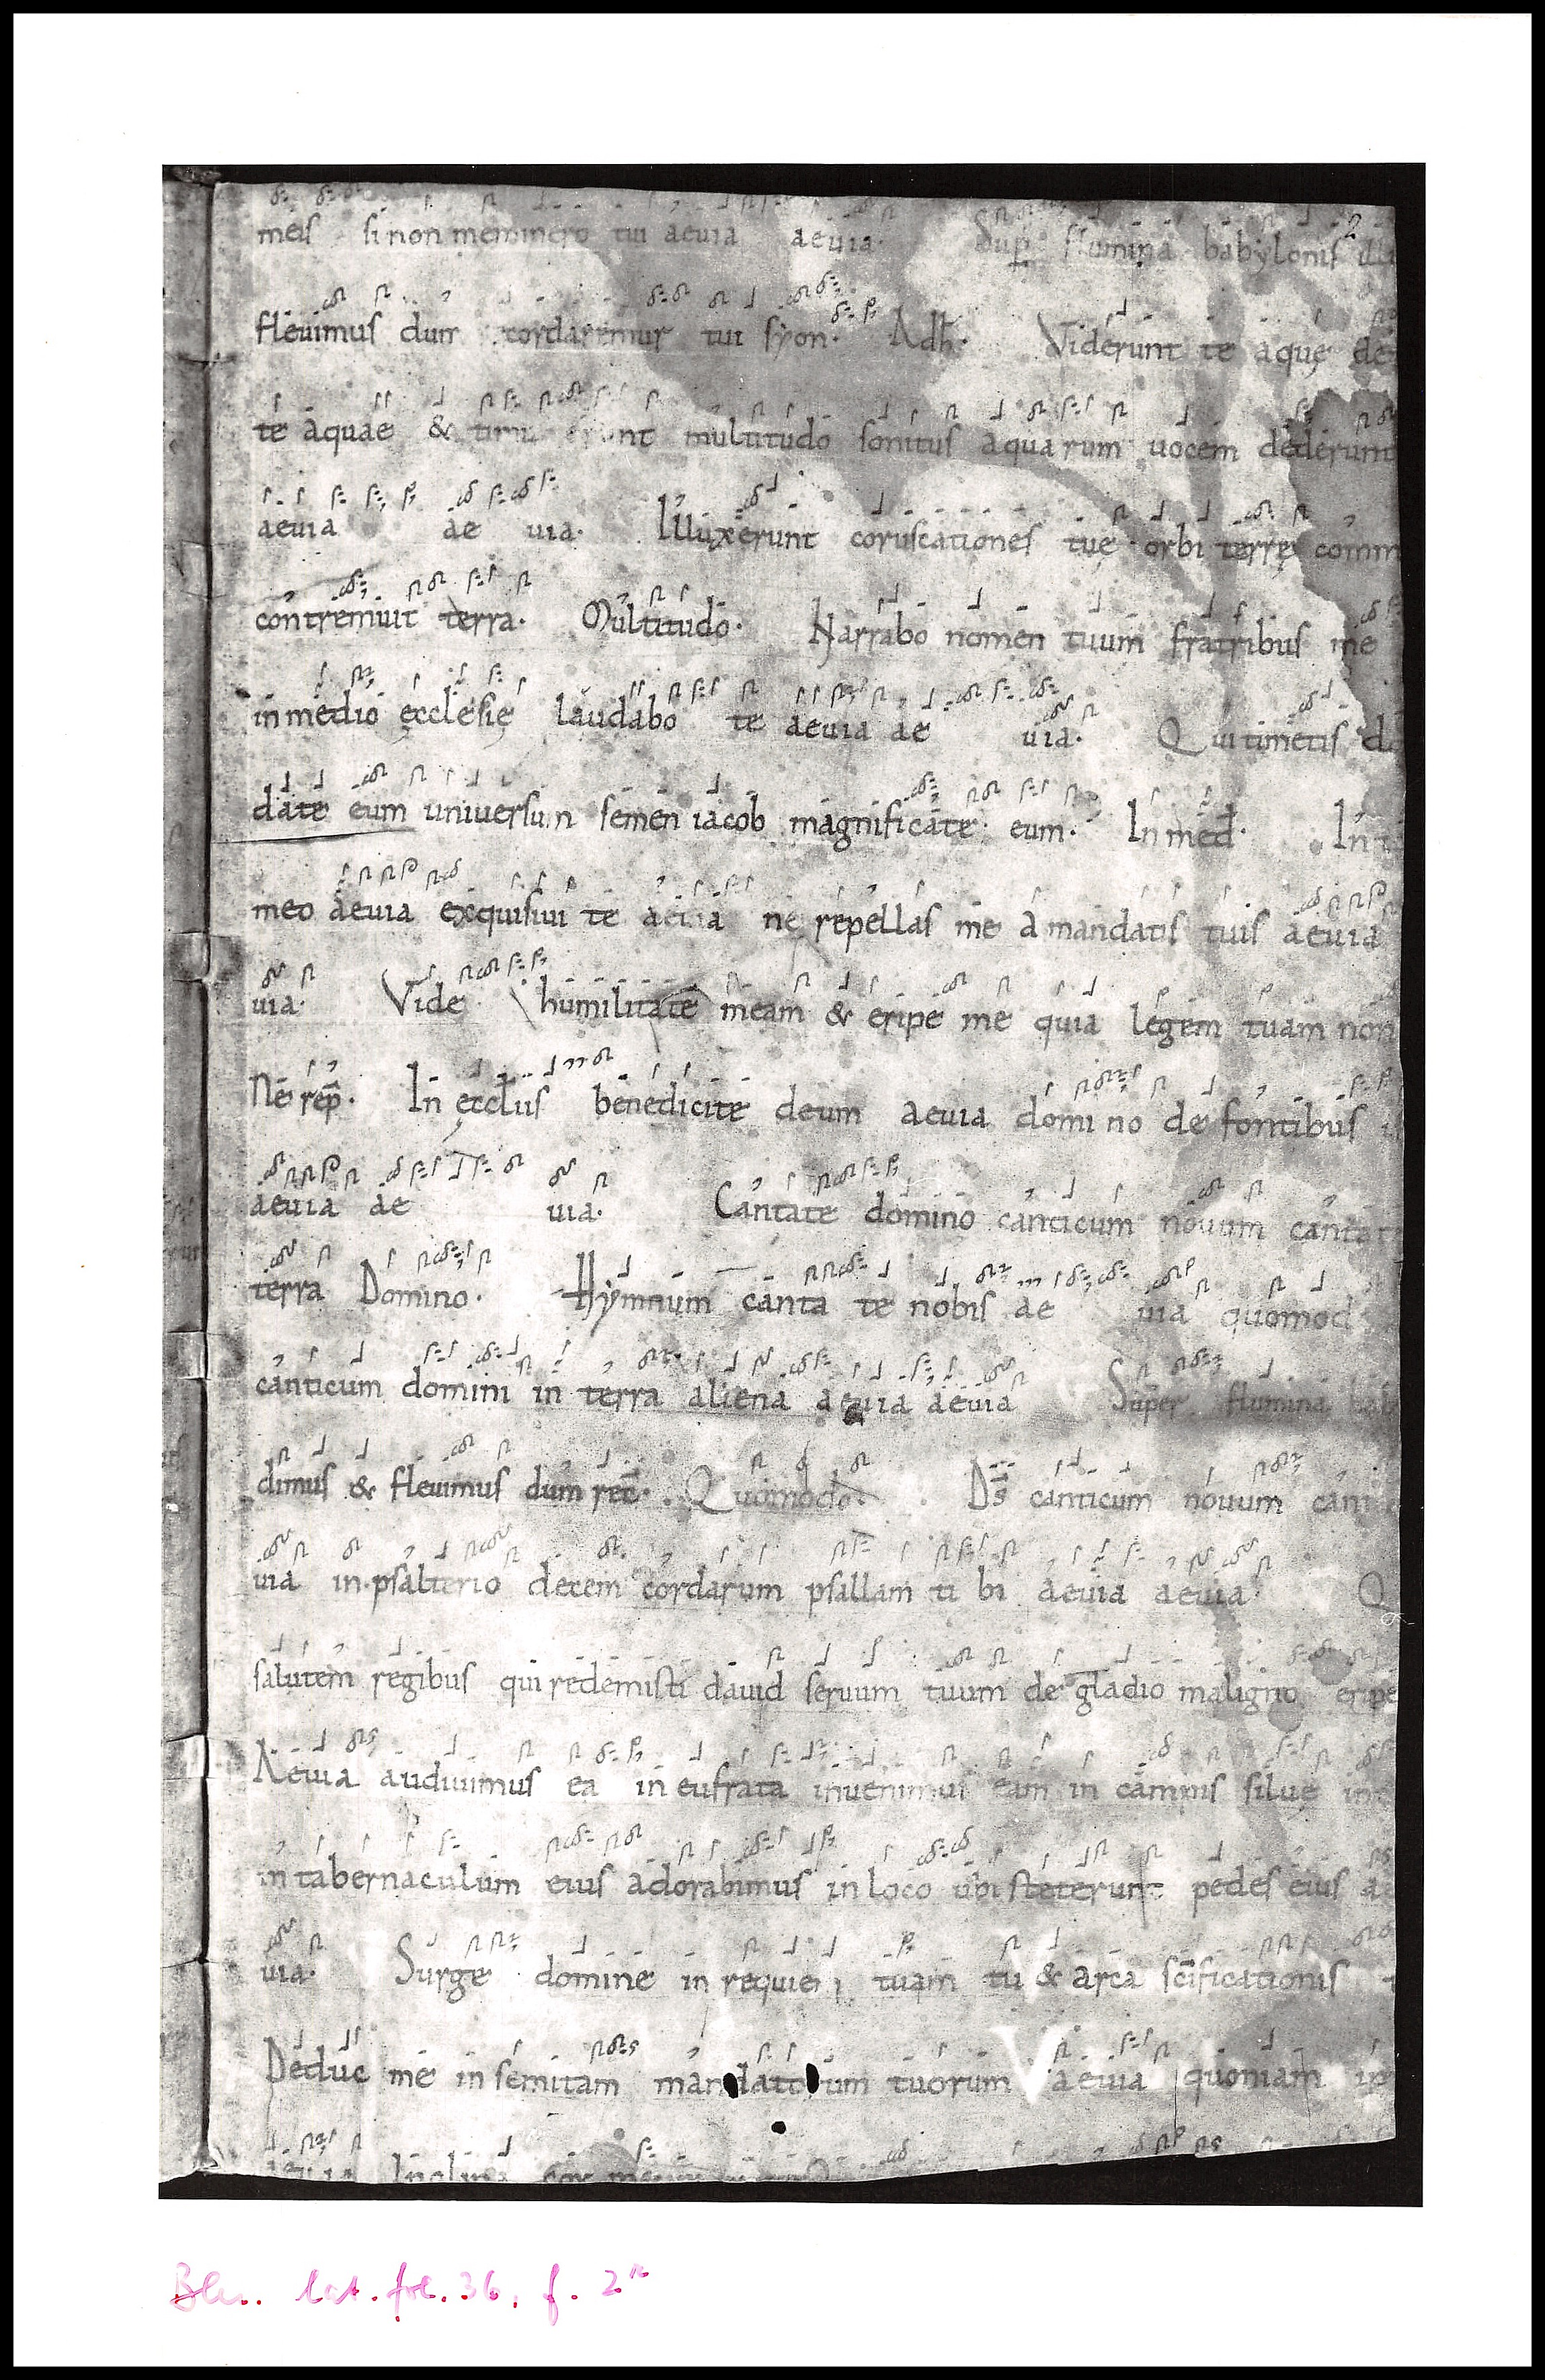 2
meis si non meminero tui aeuia aeuia. Sup flumina babylonis illi
fleuimus dum cordaremur tui syon. Adh. Viderunt te aquę de
te aquae & timuerunt multitudo sonitus aquarum uocem dederunt
aeuia ae uia. Illuxerunt coruscationes tuę orbi terrę comm
contremuit terra. Multitudo. Narrabo nomen tuum fratribus me
in medio ęcclesię laudabo te aeuia ae uia. Qui timetis do
date eum uniuersum semen iacob magnificate eum. In med. In
meo aeuia exquisiui te aeuia ne repellas me a mandatis tuis aeuia
uia. Vide humilitatē meam & eripe me quia legem tuam non
Ne rep̄. In ęccl̄iis benedicite deum aeuia domino de fontibus
aeuia ae uia. Cantate domino canticum nouum cantat
terra Domino. Hymnum canta te nobis ae uia quomod
canticum domini in terra aliena aeuia aeuia Super flumina bab
dimus & fleuimus dum rec̄. Quomodo. Ds̄ canticum nouum cant
uia in psalterio decem cordarum psallam ti bi aeuia aeuia Q
salutem regibus qui redemisti dauid seruum tuum de gladio maligno eripe
Aeuia audiuimus ea in eufrata inuenimus eam in campis siluę in
in tabernaculum eius adorabimus in loco ubi steterunt pedes eius ae
uia. Surge domine in requiem tuam tu & arca sc̄ificationis t
Deduc me in semitam mandatorum tuorum aeuia quoniam ip
aeuia Inclina cor meum
Ber. lat. fol. 36, f. 2r